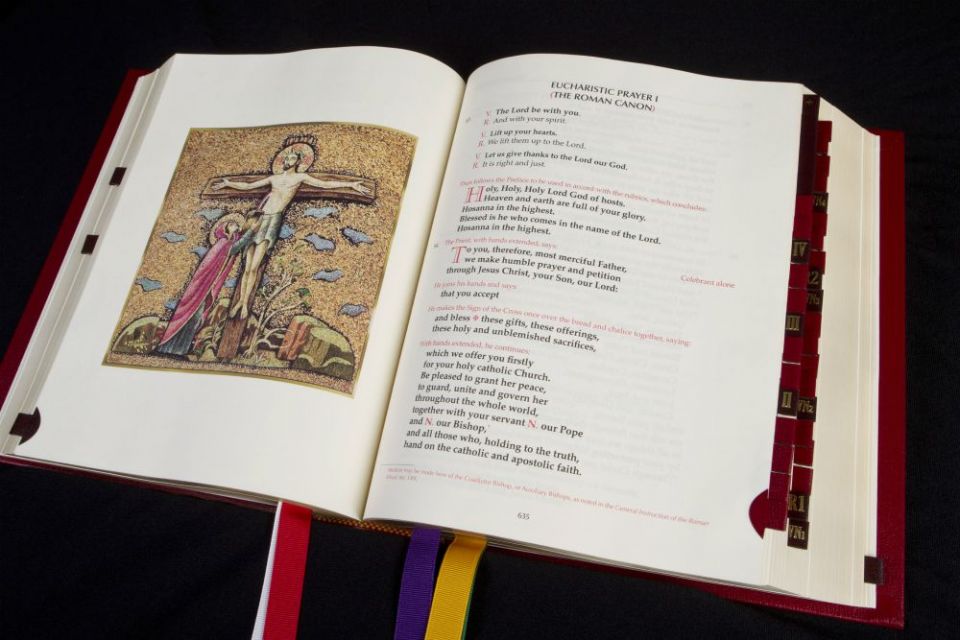 EUCHARISTIC PRAYER I
(THE ROMAN CANON)
V. The Lord be with you.
R. And with your spirit.
V. Lift up your hearts.
R. We lift them up to the Lord.
V. Let us give thanks to the Lord our God.
R. It is right and just.
Then follows the Preface to be used in accord with the rubrics, which concludes:
Holy, Holy, Holy Lord God of hosts.
Heaven and earth are full of your glory.
Hosanna in the highest.
Blessed is he who comes in the name of the Lord.
Hosanna in the highest.
The Priest, with hands extended, says:
To you, therefore, most merciful Father,
we make humble prayer and petition
through Jesus Christ, your Son, our Lord:
Celebrant alone
He joins his hands and says:
that you accept
He makes the Sign of the Cross once over the bread and chalice together, saying:
and bless ✠ these gifts, these offerings,
these holy and unblemished sacrifices,
With hands extended, he continues:
which we offer you firstly
for your holy catholic Church.
Be pleased to grant her peace,
to guard, unite and govern her
throughout the whole world,
together with your servant N. our Pope
and N. our Bishop,*
and all those who, holding to the truth,
hand on the catholic and apostolic faith.
may be made here of the Coadjutor Bishop, or Auxiliary Bishops, as noted in the General Instruction of the Roman
Missal, no. 149.
635
IV
III
II
R1